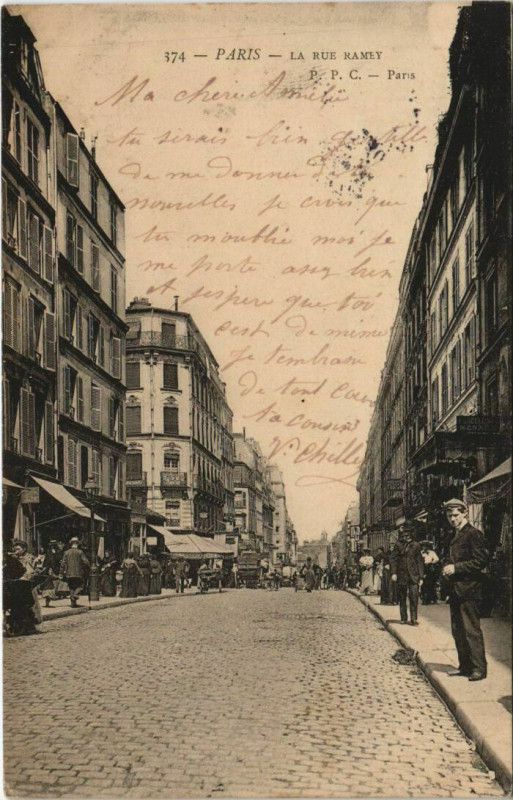 374 — PARIS — LA RUE RAMEY
P. P. C. — Paris
Ma chère Amélie
tu serais bien
de me donner
nouvelles je crois que
tu moublie moi je
me porte assez bien
et jespere que toi
c'est de meme
je tembrasse
de tout cœur
ta cousine